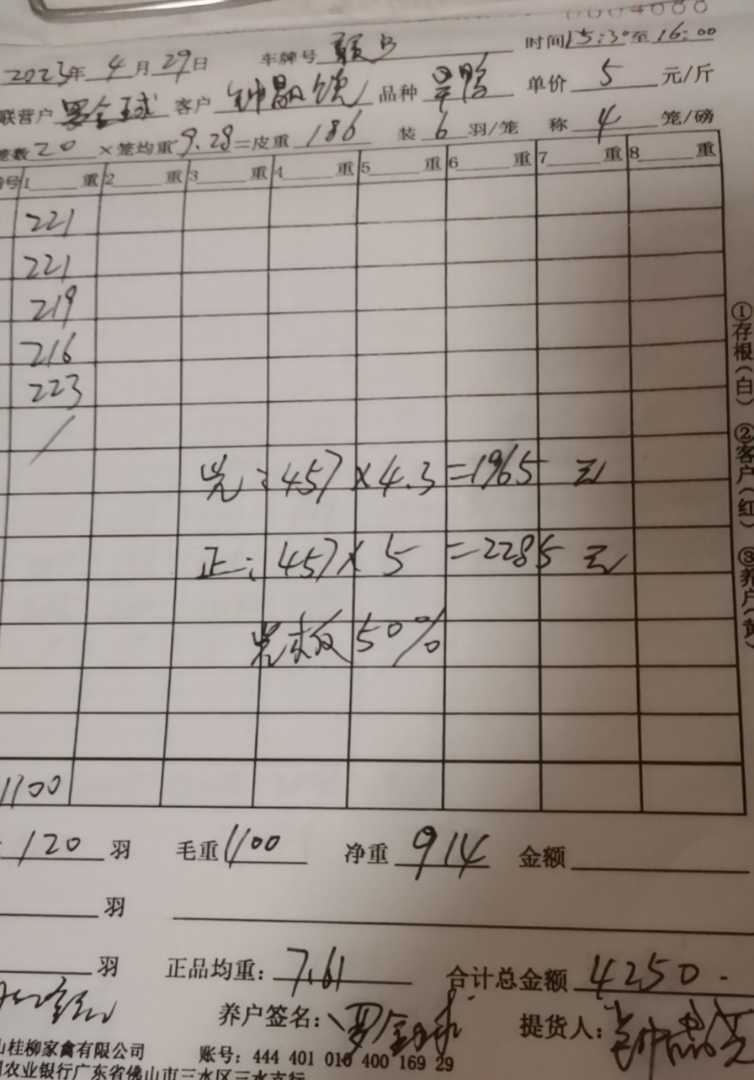 2023年 4 月 29 日 车牌号 时间 15:30 至 16:00
联营户 罗金球 客户 品种 单价 5 元/斤
笼数 20 ×笼均重 9.28 =皮重 186 装 6 羽/笼 称 4 笼/磅
号 1 重 2 重 3 重 4 重 5 重 6 重 7 重 8 重
221
221
219
216
223
457×4.3=1965 元
正:457×5=2285 元
50%
1100
120 羽 毛重 1100 净重 914 金额
羽
羽 正品均重: 7.61 合计总金额 4250.
养户签名: 罗金球 提货人:
山桂柳家禽有限公司 账号: 444 401 010 400 169 29
农业银行广东省佛山市三水区三水支行
①存根(白) ②客户(红) ③养户(黄)